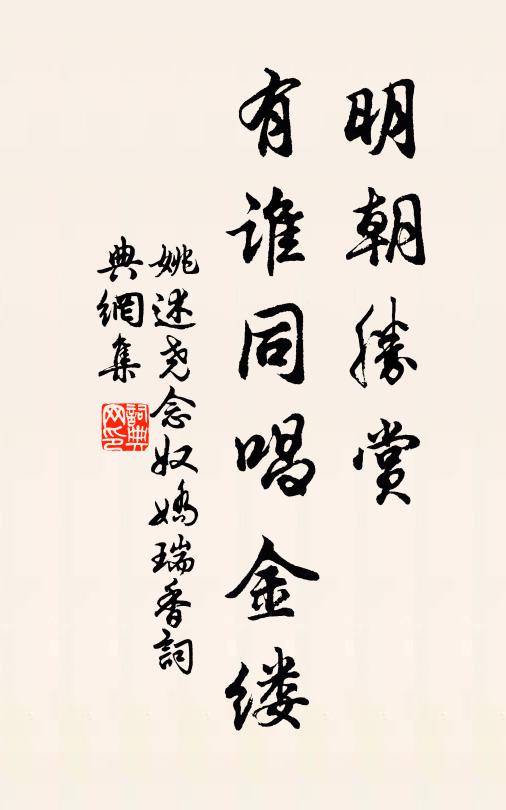 明朝勝賞
有谁同唱金缕
姚述尧念奴嬌瑞香詞
典網集
詞典网印